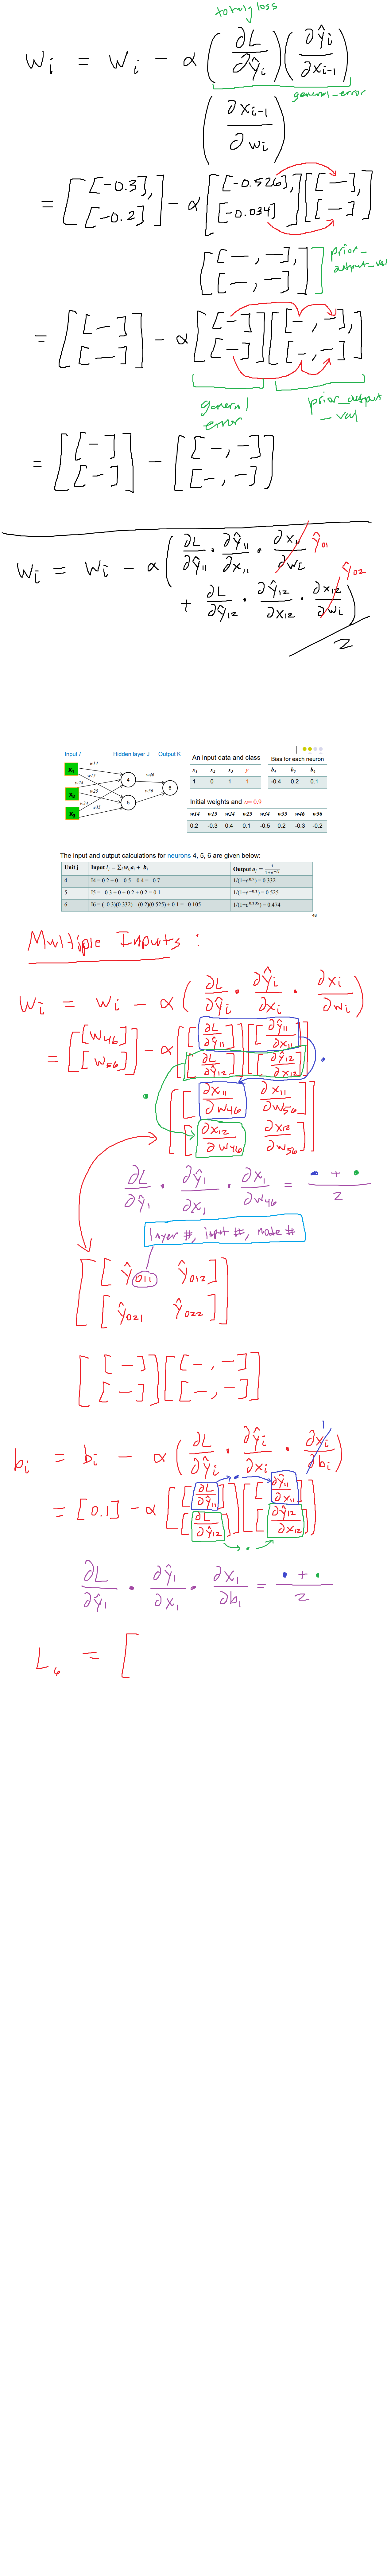 totaling loss
wᵢ = wᵢ − α (∂L/∂ŷᵢ)(∂ŷᵢ/∂xᵢ₋₁)
general_error
(∂xᵢ₋₁/∂wᵢ)
= [[-0.3], [-0.2]] − α [[-0.526], [-0.034]] [[—], [—]]
[[—, —], [—, —]] prior_output_val
= [[—], [—]] − α [[—], [—]] [[—, —], [—, —]]
general error prior_output_val
= [[—], [—]] − [[—, —], [—, —]]
wᵢ = wᵢ − α (∂L/∂ŷ₁₁ · ∂ŷ₁₁/∂x₁₁ · ∂x₁₁/∂wᵢ ŷ₀₁
+ ∂L/∂ŷ₁₂ · ∂ŷ₁₂/∂x₁₂ · ∂x₁₂/∂wᵢ ŷ₀₂) / 2
Input I Hidden layer J Output K
x₁ x₂ x₃ 4 5 6
w14 w15 w24 w25 w34 w35 w46 w56
An input data and class
x₁ x₂ x₃ y
1 0 1 1
Bias for each neuron
b₄ b₅ b₆
-0.4 0.2 0.1
Initial weights and α= 0.9
w14 w15 w24 w25 w34 w35 w46 w56
0.2 -0.3 0.4 0.1 -0.5 0.2 -0.3 -0.2
The input and output calculations for neurons 4, 5, 6 are given below:
Unit j Input Iⱼ = Σᵢ wᵢⱼaᵢ + bⱼ Output aⱼ = 1/(1+e^−Iⱼ)
4 I4 = 0.2 + 0 − 0.5 − 0.4 = −0.7 1/(1+e^0.7) = 0.332
5 I5 = −0.3 + 0 + 0.2 + 0.2 = 0.1 1/(1+e^−0.1) = 0.525
6 I6 = (−0.3)(0.332) − (0.2)(0.525) + 0.1 = −0.105 1/(1+e^0.105) = 0.474
Multiple Inputs :
wᵢ = wᵢ − α (∂L/∂ŷᵢ · ∂ŷᵢ/∂xᵢ · ∂xᵢ/∂wᵢ)
= [[w₄₆], [w₅₆]] − α [[∂L/∂ŷ₁₁], [∂L/∂ŷ₁₂]] [[∂ŷ₁₁/∂x₁₁], [∂ŷ₁₂/∂x₁₂]]
[[∂x₁₁/∂w₄₆ ∂x₁₁/∂w₅₆], [∂x₁₂/∂w₄₆ ∂x₁₂/∂w₅₆]]
∂L/∂ŷ₁ · ∂ŷ₁/∂x₁ · ∂x₁/∂w₄₆ = (· + ·)/2
layer #, input #, node #
[[ŷ₀₁₁ ŷ₀₁₂], [ŷ₀₂₁ ŷ₀₂₂]]
[[—], [—]] [[—, —], [—, —]]
bᵢ = bᵢ − α (∂L/∂ŷᵢ · ∂ŷᵢ/∂xᵢ · ∂xᵢ/∂bᵢ 1)
= [0.1] − α [[∂L/∂ŷ₁₁], [∂L/∂ŷ₁₂]] [[∂ŷ₁₁/∂x₁₁], [∂ŷ₁₂/∂x₁₂]]
∂L/∂ŷ₁ · ∂ŷ₁/∂x₁ · ∂x₁/∂b₁ = (· + ·)/2
L₆ = [